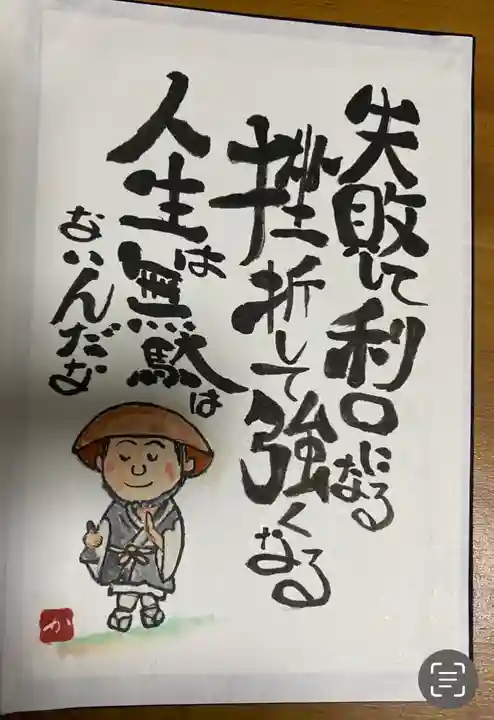 失敗して利口になる
挫折して強くなる
人生は無駄は
ないんだな
か